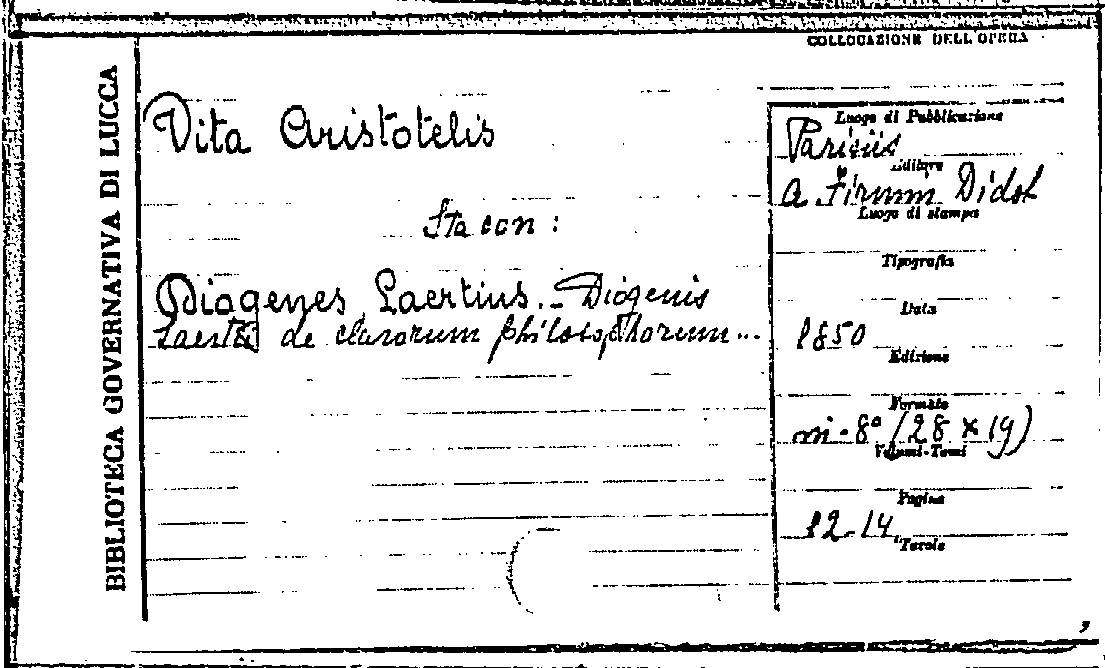 COLLOCAZIONE DELL'OPERA
BIBLIOTECA GOVERNATIVA DI LUCCA
Vita Aristotelis
Sta con :
Diogenes Laertius. - Diogenis
Laertii de clarorum philosophorum...
Luogo di Pubblicazione
Parisiis
Editore
A. Firmin Didot
Luogo di stampa
Tipografia
Data
1850
Edizione
Formato
in-8° (28 x 19)
Volumi-Tomi
Pagine
12-14
Tavole